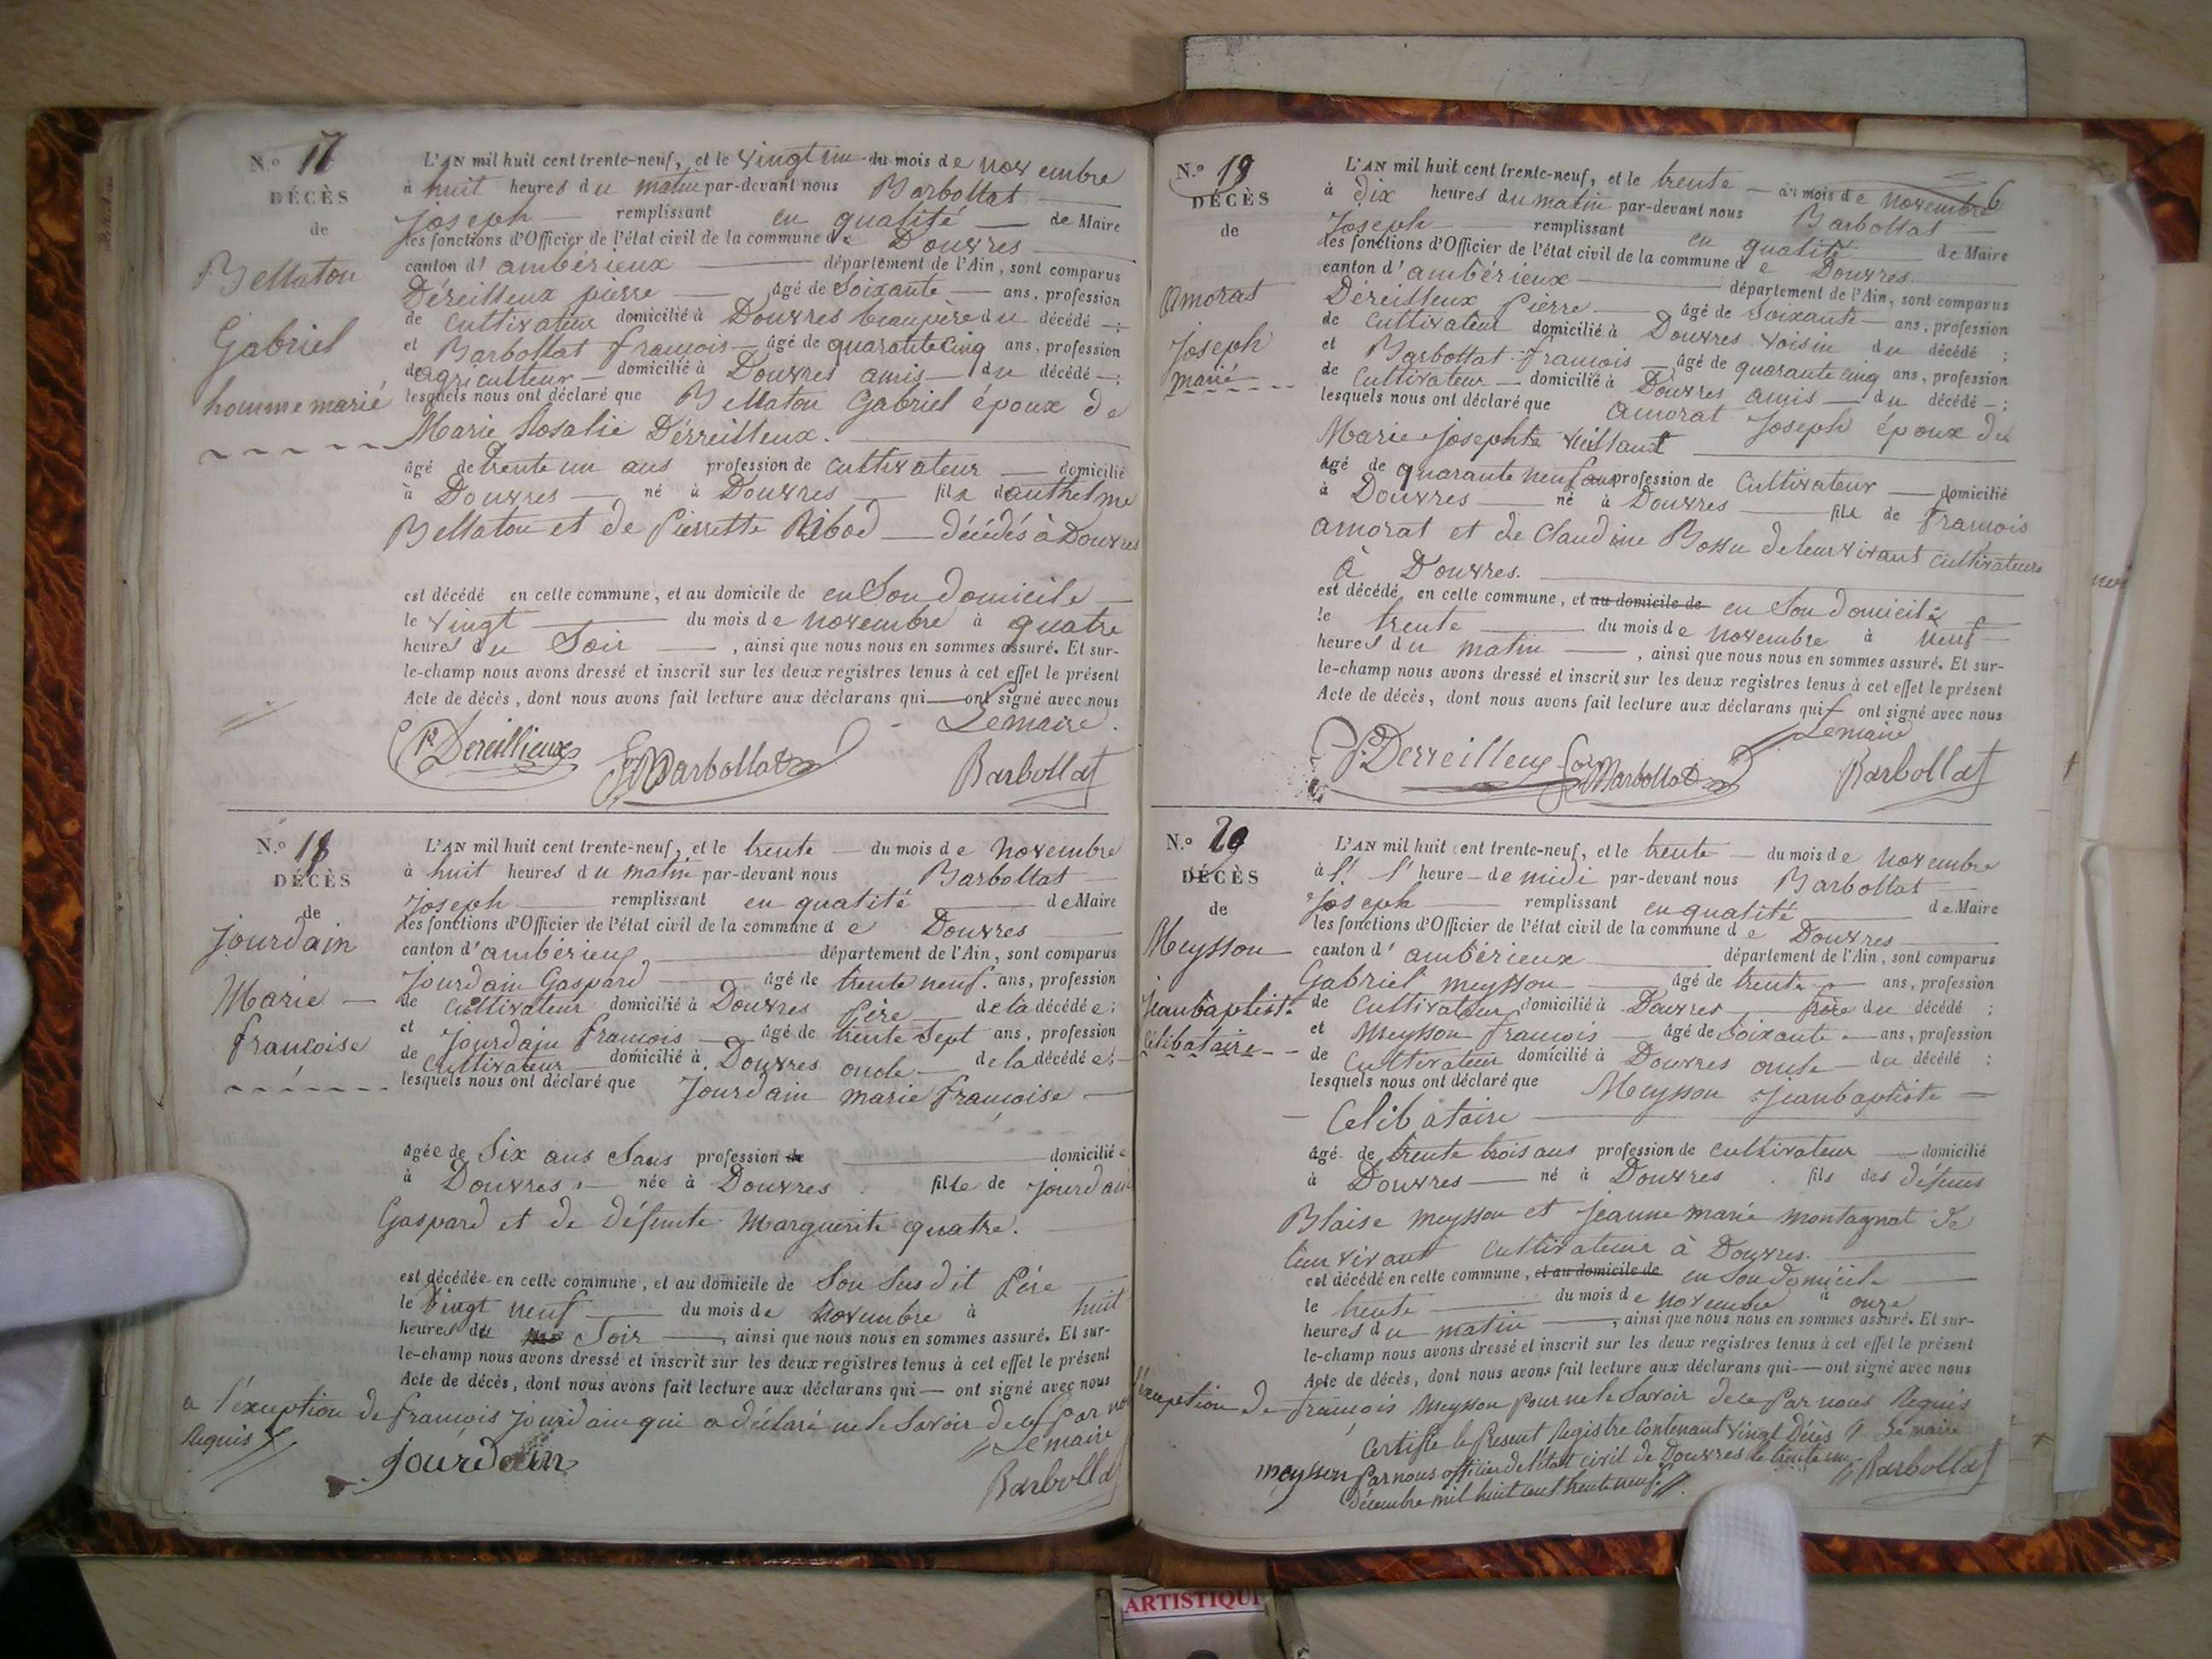 N.° 17
DÉCÈS
de
Bellaton
Gabriel
homme marié
L'AN mil huit cent trente-neuf, et le vingt un du mois de novembre
à huit heures du matin par-devant nous Barbollat
Joseph remplissant en qualité de Maire
les fonctions d'Officier de l'état civil de la commune de Douvres
canton d'ambérieux département de l'Ain, sont comparus
Déreilleux pierre âgé de Soixante ans, profession
de Cultivateur domicilié à Douvres beaupère du décédé ;
et Barbollat françois âgé de quarante Cinq ans, profession
de agriculteur domicilié à Douvres amis du décédé ;
lesquels nous ont déclaré que Bellaton Gabriel époux de
Marie Rosalie Dérreilleux.
âgé de trente un ans profession de cultivateur domicilié
à Douvres né à Douvres fils d'anthelme
Bellaton et de Pierrette Ribod décédés à Douvres
est décédé en cette commune, et au domicile de en Son domicile
le vingt du mois de novembre à quatre
heures du Soir , ainsi que nous nous en sommes assuré. Et sur-
le-champ nous avons dressé et inscrit sur les deux registres tenus à cet effet le présent
Acte de décès, dont nous avons fait lecture aux déclarans qui ont signé avec nous
Lemaire.
Pre Dereillieux Barbollat Barbollat
N.° 18
DÉCÈS
de
jourdain
Marie
françoise
L'AN mil huit cent trente-neuf, et le trente du mois de novembre
à huit heures du matin par-devant nous Barbollat
Joseph remplissant en qualité de Maire
les fonctions d'Officier de l'état civil de la commune de Douvres
canton d'ambérieux département de l'Ain, sont comparus
Jourdain Gaspard âgé de trente neuf. ans, profession
de Cultivateur domicilié à Douvres Père de la décédée ;
et jourdain françois âgé de trente Sept ans, profession
de Cultivateur domicilié à Douvres oncle de la décédée ;
lesquels nous ont déclaré que Jourdain marie françoise
âgée de Six ans Sans profession de domiciliée
à Douvres née à Douvres fille de jourdain
Gaspard et de défunte Marguerite quatre.
est décédée en cette commune, et au domicile de Son Susdit Père
le Vingt neuf du mois de novembre à huit
heures du Soir , ainsi que nous nous en sommes assuré. Et sur-
le-champ nous avons dressé et inscrit sur les deux registres tenus à cet effet le présent
Acte de décès, dont nous avons fait lecture aux déclarans qui ont signé avec nous
a l'éxception de françois jourdain qui a déclaré ne le Savoir de ce par nous
Requis
Lemaire
Jourdain Barbollat
N.° 19
DÉCÈS
de
amorat
Joseph
marié
6
L'AN mil huit cent trente-neuf, et le trente du mois de novembre
à dix heures du matin par-devant nous Barbollat
Joseph remplissant en qualité de Maire
les fonctions d'Officier de l'état civil de la commune de Douvres
canton d'ambérieux département de l'Ain, sont comparus
Déreilleux Pierre âgé de Soixante ans, profession
de Cultivateur domicilié à Douvres voisin du décédé ;
et Barbollat françois âgé de quarante cinq ans, profession
de Cultivateur domicilié à Douvres amis du décédé ;
lesquels nous ont déclaré que amorat Joseph époux de
Marie Josephte
âgé de quarante neuf ans profession de Cultivateur domicilié
à Douvres né à Douvres fils de françois
amorat et de Claudine Bossu de leur vivant cultivateurs
à Douvres.
est décédé en cette commune, et au domicile de en Son domicile
le trente du mois de novembre à neuf
heures du matin , ainsi que nous nous en sommes assuré. Et sur-
le-champ nous avons dressé et inscrit sur les deux registres tenus à cet effet le présent
Acte de décès, dont nous avons fait lecture aux déclarans qui ont signé avec nous
Lemaire
P. Derreilleux Barbollat Barbollat
N.° 20
DÉCÈS
de
Meysson
jeanbaptiste
Célibataire
L'AN mil huit cent trente-neuf, et le trente du mois de novembre
à heure de midi par-devant nous Barbollat
Joseph remplissant en qualité de Maire
les fonctions d'Officier de l'état civil de la commune de Douvres
canton d'ambérieux département de l'Ain, sont comparus
Gabriel meysson âgé de trente ans, profession
de Cultivateur domicilié à Douvres frère du décédé ;
et Meysson françois âgé de Soixante ans, profession
de Cultivateur domicilié à Douvres oncle du décédé ;
lesquels nous ont déclaré que Meysson jeanbaptiste
Celibataire
âgé de trente trois ans profession de cultivateur domicilié
à Douvres né à Douvres fils des défunts
Blaise meysson et jeanne marie montagnat de
leur vivant cultivateurs à Douvres.
est décédé en cette commune, et au domicile de en Son domicile
le trente du mois de novembre à onze
heures du matin , ainsi que nous nous en sommes assuré. Et sur-
le-champ nous avons dressé et inscrit sur les deux registres tenus à cet effet le présent
Acte de décès, dont nous avons fait lecture aux déclarans qui ont signé avec nous
l'exception de françois Meysson pour ne le Savoir de ce par nous Requis
Certifié le présent Registre Contenant vingt Décès Le maire
meysson Par nous officier de l'état civil de Douvres le trente un Barbollat
Décembre mil huit cent trente neuf.
ARTISTIQUE